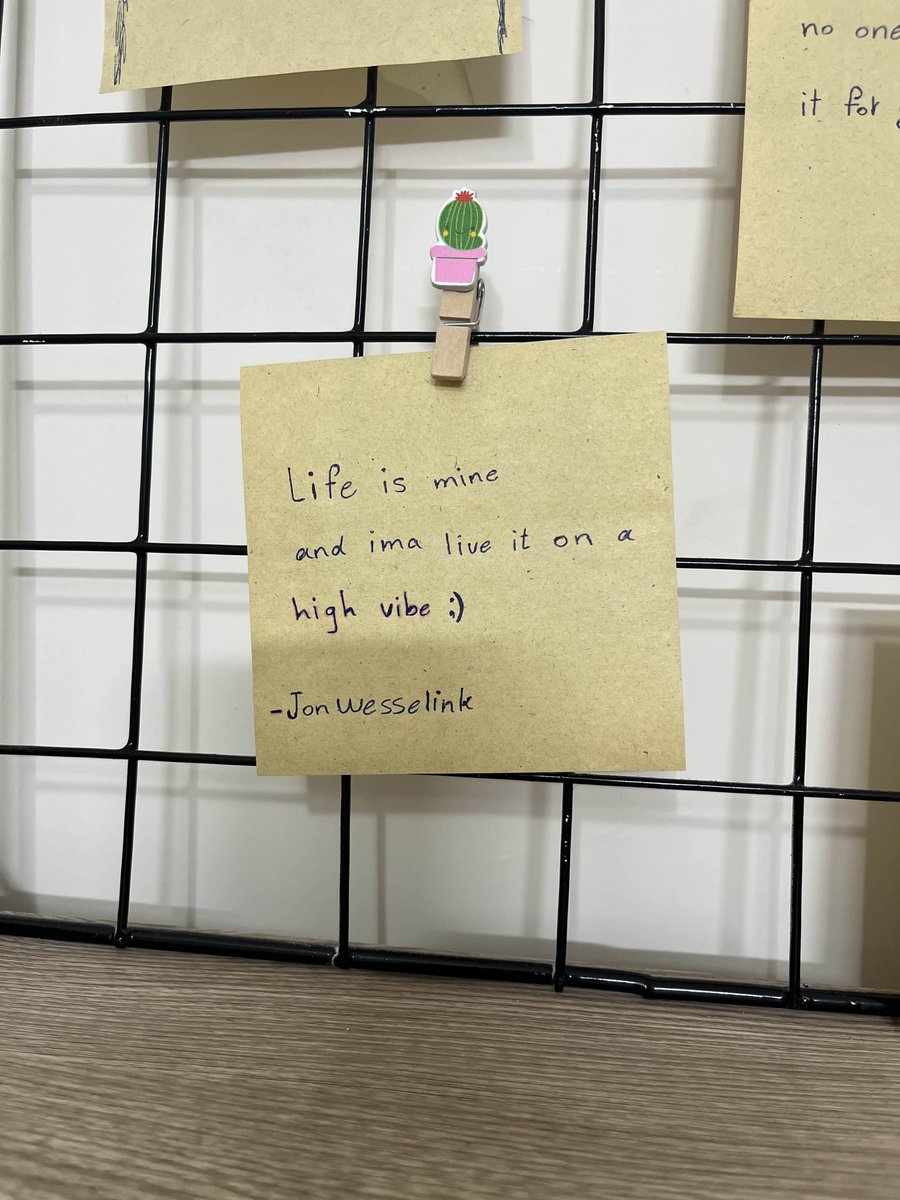 no one
it for
Life is mine
and ima live it on a
high vibe ;)
-Jon Wesselink